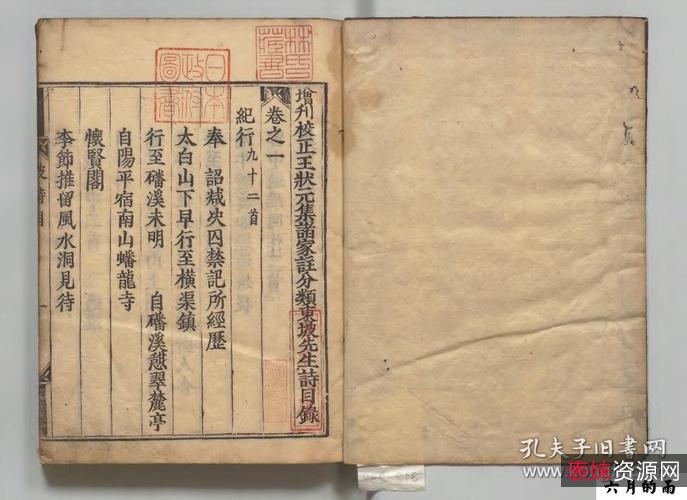 增刋校正王狀元集諸家註分類東坡先生詩目錄
卷之一
紀行九十二首
奉 詔减决囚禁記所經歷
太白山下早行至横渠鎮
行至磻溪未明 自磻溪憇翠麓亭
自陽平宿南山蟠龍寺
懷賢閣
李節推留風水洞見待
坡詩目
一
日本
政府
圖書
孔夫子旧书网
资源网
六月的雨